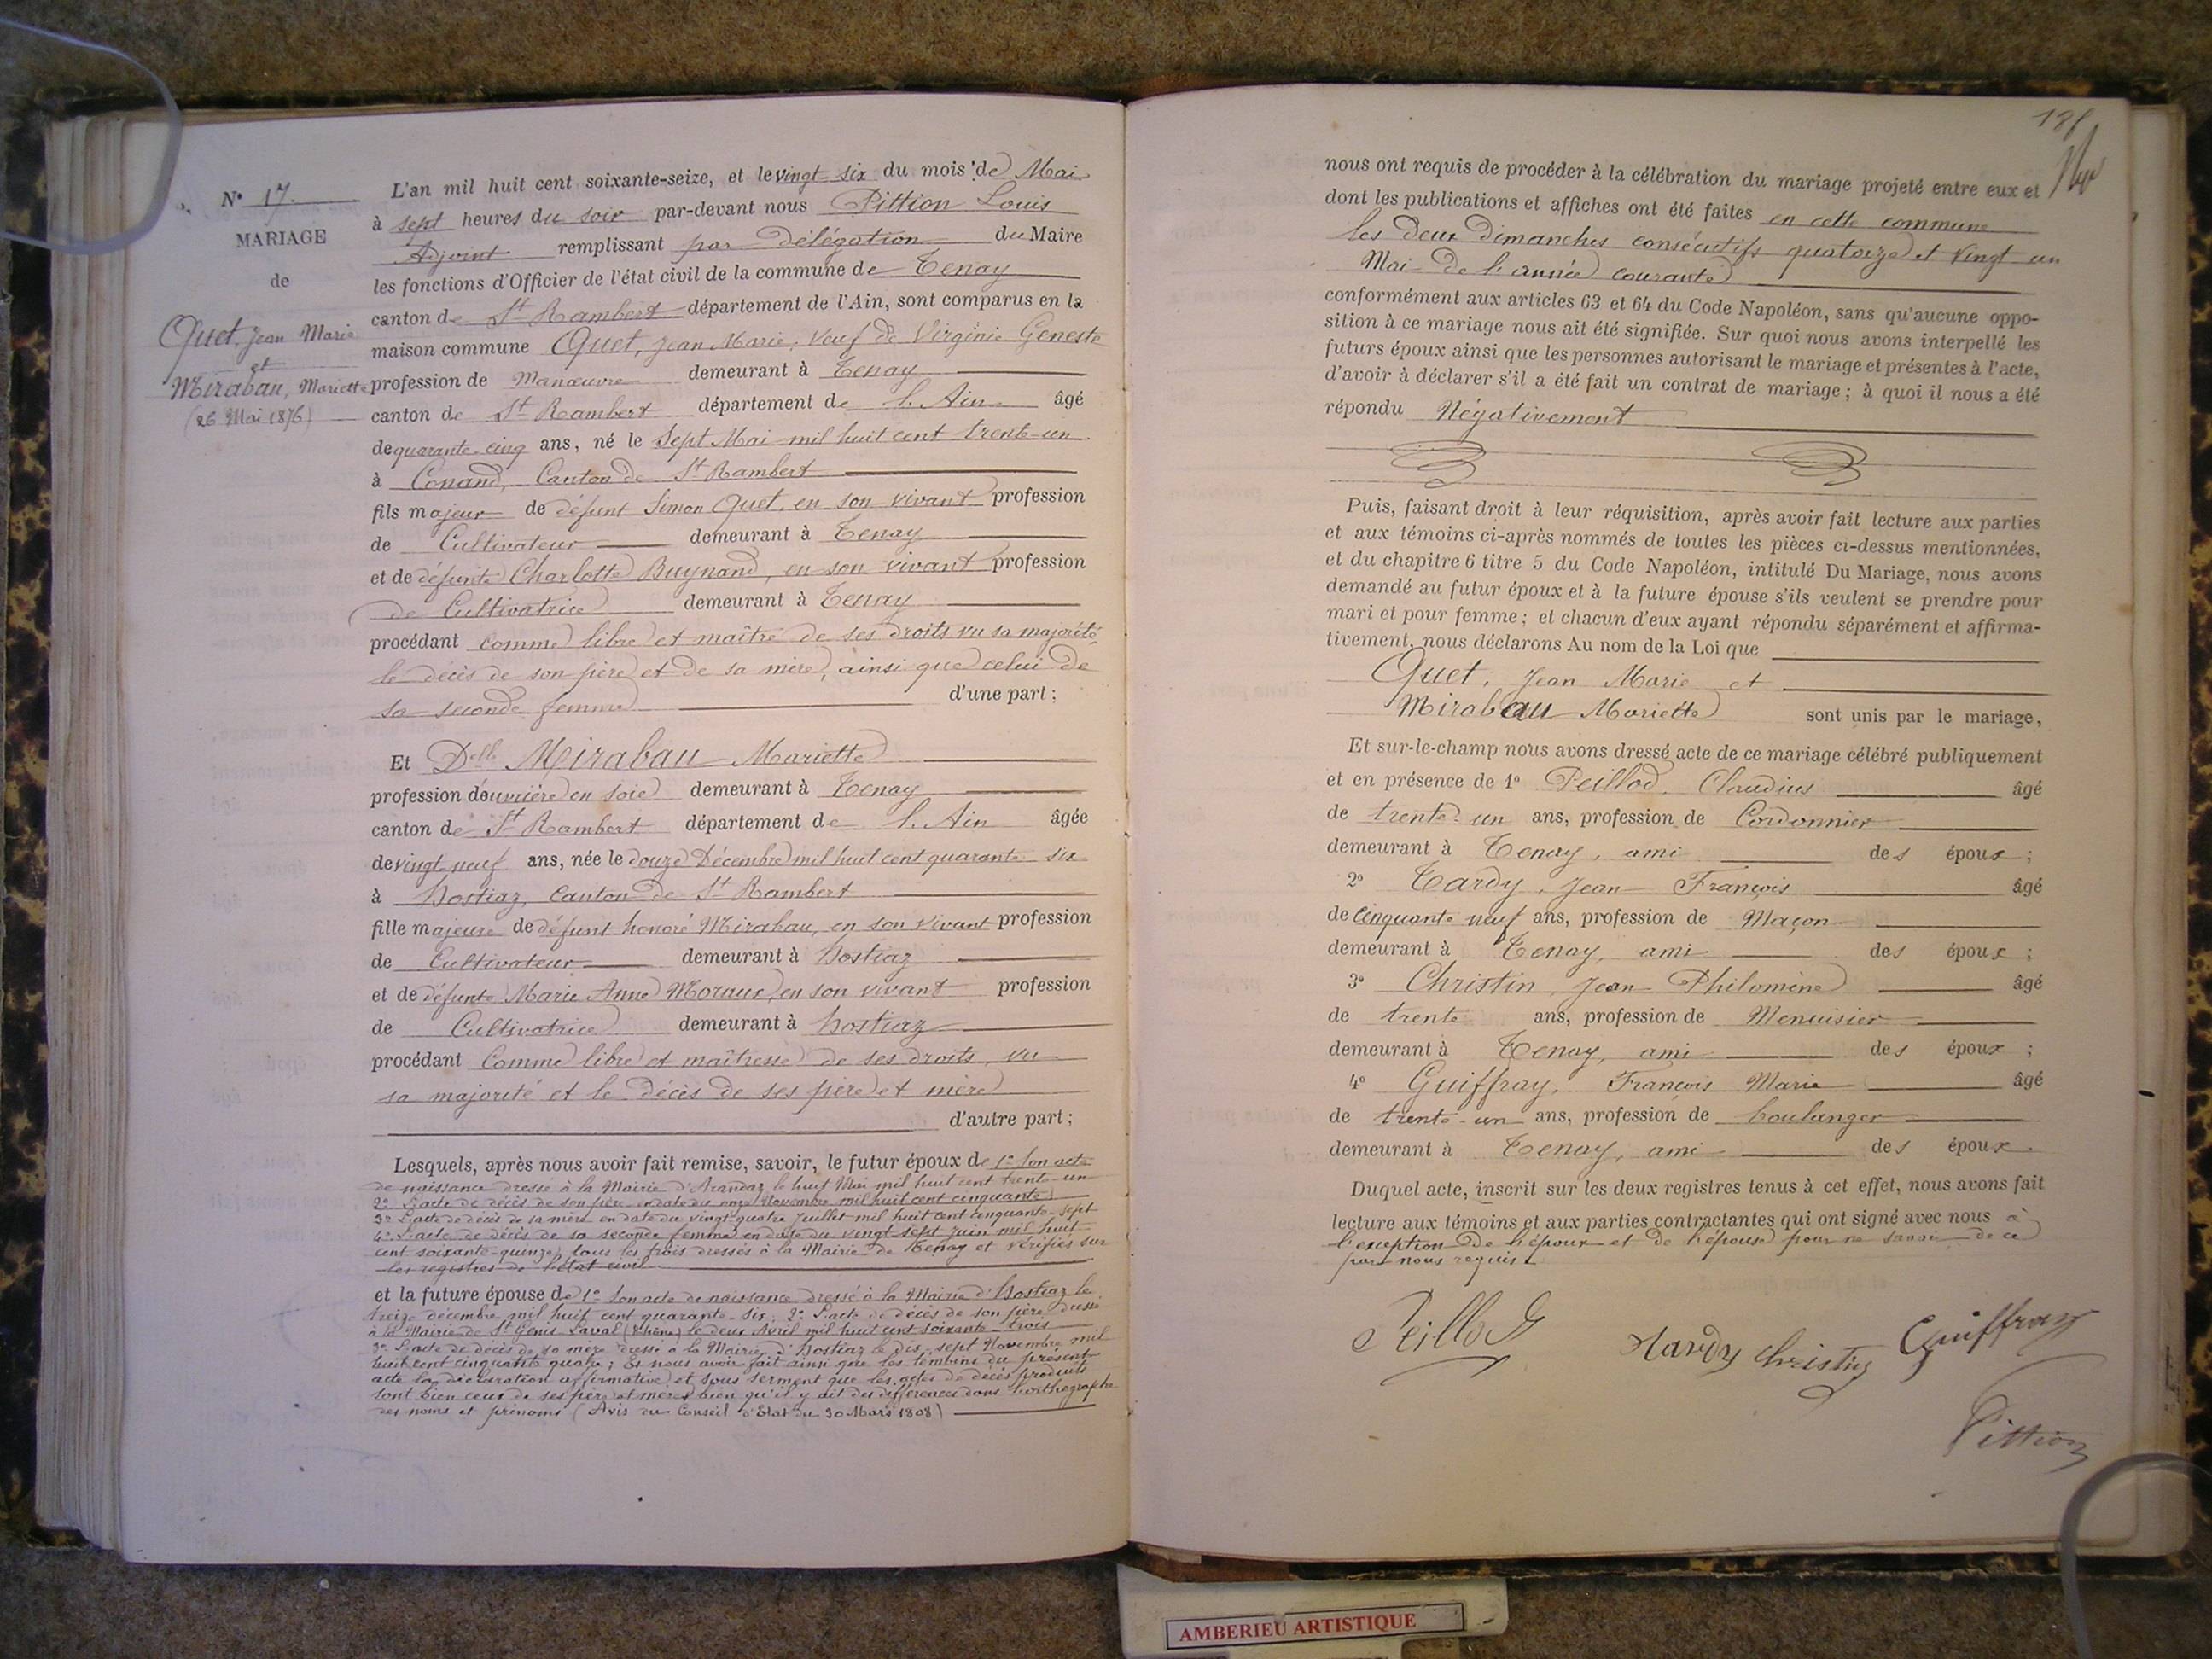 N° 17.
MARIAGE
de
Quet, Jean Marie
et
Mirabau, Mariette
(26 Mai 1876)
L'an mil huit cent soixante-seize, et le vingt-six du mois de Mai
à sept heures du soir par-devant nous Pittion Louis
Adjoint remplissant par délégation du Maire
les fonctions d'Officier de l'état civil de la commune de Tenay
canton de St Rambert département de l'Ain, sont comparus en la
maison commune Quet, Jean Marie, veuf de Virginie Geneste
profession de Manœuvre demeurant à Tenay
canton de St Rambert département de l'Ain âgé
de quarante-cinq ans, né le sept Mai mil huit cent trente-un
à Conand, Canton de St Rambert
fils majeur de défunt Simon Quet, en son vivant profession
de Cultivateur demeurant à Tenay
et de défunte Charlotte Buynand, en son vivant profession
de Cultivatrice demeurant à Tenay
procédant comme libre et maître de ses droits vu sa majorité
le décès de son père et de sa mère, ainsi que celui de
sa seconde femme d'une part ;
Et Delle Mirabau Mariette
profession d'ouvrière en soie demeurant à Tenay
canton de St Rambert département de l'Ain âgée
de vingt neuf ans, née le douze Décembre mil huit cent quarante-six
à hostiaz, Canton de St Rambert
fille majeure de défunt honoré Mirabau, en son vivant profession
de Cultivateur demeurant à hostiaz
et de défunte Marie Anne Moraux, en son vivant profession
de Cultivatrice demeurant à hostiaz
procédant Comme libre et maîtresse de ses droits, vu
sa majorité et le décès de ses père et mère
d'autre part ;
Lesquels, après nous avoir fait remise, savoir, le futur époux de 1° Son acte
de naissance dressé à la Mairie d'Arandaz le huit Mai mil huit cent trente-un
2° L'acte de décès de son père en date du onze Novembre mil huit cent cinquante
3° L'acte de décès de sa mère en date du vingt quatre Juillet mil huit cent cinquante-sept
4° L'acte de décès de sa seconde femme en date du vingt-sept Juin mil huit
cent soixante-quinze, tous les trois dressés à la Mairie de Tenay et vérifiés sur
les registres de l'état civil
et la future épouse de 1° Son acte de naissance dressé à la Mairie d'hostiaz le
treize décembre mil huit cent quarante-six, 2° L'acte de décès de son père dressé
à la Mairie de St Genis Laval (Rhône) le deux Avril mil huit cent soixante-trois
3° L'acte de décès de sa mère dressé à la Mairie d'hostiaz le dix-sept Novembre mil
huit cent cinquante quatre ; Et nous avoir fait ainsi que les témoins du présent
acte la déclaration affirmative et sous serment que les actes de décès produits
sont bien ceux de ses père et mère bien qu'il y ait des différences dans l'orthographe
des noms et prénoms (Avis du Conseil d'Etat du 30 Mars 1808)
nous ont requis de procéder à la célébration du mariage projeté entre eux et
dont les publications et affiches ont été faites en cette commune
les deux dimanches consécutifs quatorze et vingt-un
Mai de l'année courante
conformément aux articles 63 et 64 du Code Napoléon, sans qu'aucune oppo-
sition à ce mariage nous ait été signifiée. Sur quoi nous avons interpellé les
futurs époux ainsi que les personnes autorisant le mariage et présentes à l'acte,
d'avoir à déclarer s'il a été fait un contrat de mariage ; à quoi il nous a été
répondu Négativement
Puis, faisant droit à leur réquisition, après avoir fait lecture aux parties
et aux témoins ci-après nommés de toutes les pièces ci-dessus mentionnées,
et du chapitre 6 titre 5 du Code Napoléon, intitulé Du Mariage, nous avons
demandé au futur époux et à la future épouse s'ils veulent se prendre pour
mari et pour femme ; et chacun d'eux ayant répondu séparément et affirma-
tivement, nous déclarons Au nom de la Loi que
Quet, Jean Marie et
Mirabau Mariette sont unis par le mariage,
Et sur-le-champ nous avons dressé acte de ce mariage célébré publiquement
et en présence de 1° Peillod, Claudius âgé
de trente-un ans, profession de Cordonnier
demeurant à Tenay, ami des époux ;
2° Tardy, Jean François âgé
de Cinquante neuf ans, profession de Maçon
demeurant à Tenay, ami des époux ;
3° Christin, Jean Philomène âgé
de trente ans, profession de Menuisier
demeurant à Tenay, ami des époux ;
4° Guiffray, François Marie âgé
de trente-un ans, profession de boulanger
demeurant à Tenay, ami des époux.
Duquel acte, inscrit sur les deux registres tenus à cet effet, nous avons fait
lecture aux témoins et aux parties contractantes qui ont signé avec nous à
l'exception de l'époux et de l'épouse pour ne savoir de ce
par nous requis.
Peillod Tardy Christin Guiffray
Pittion
AMBERIEU ARTISTIQUE